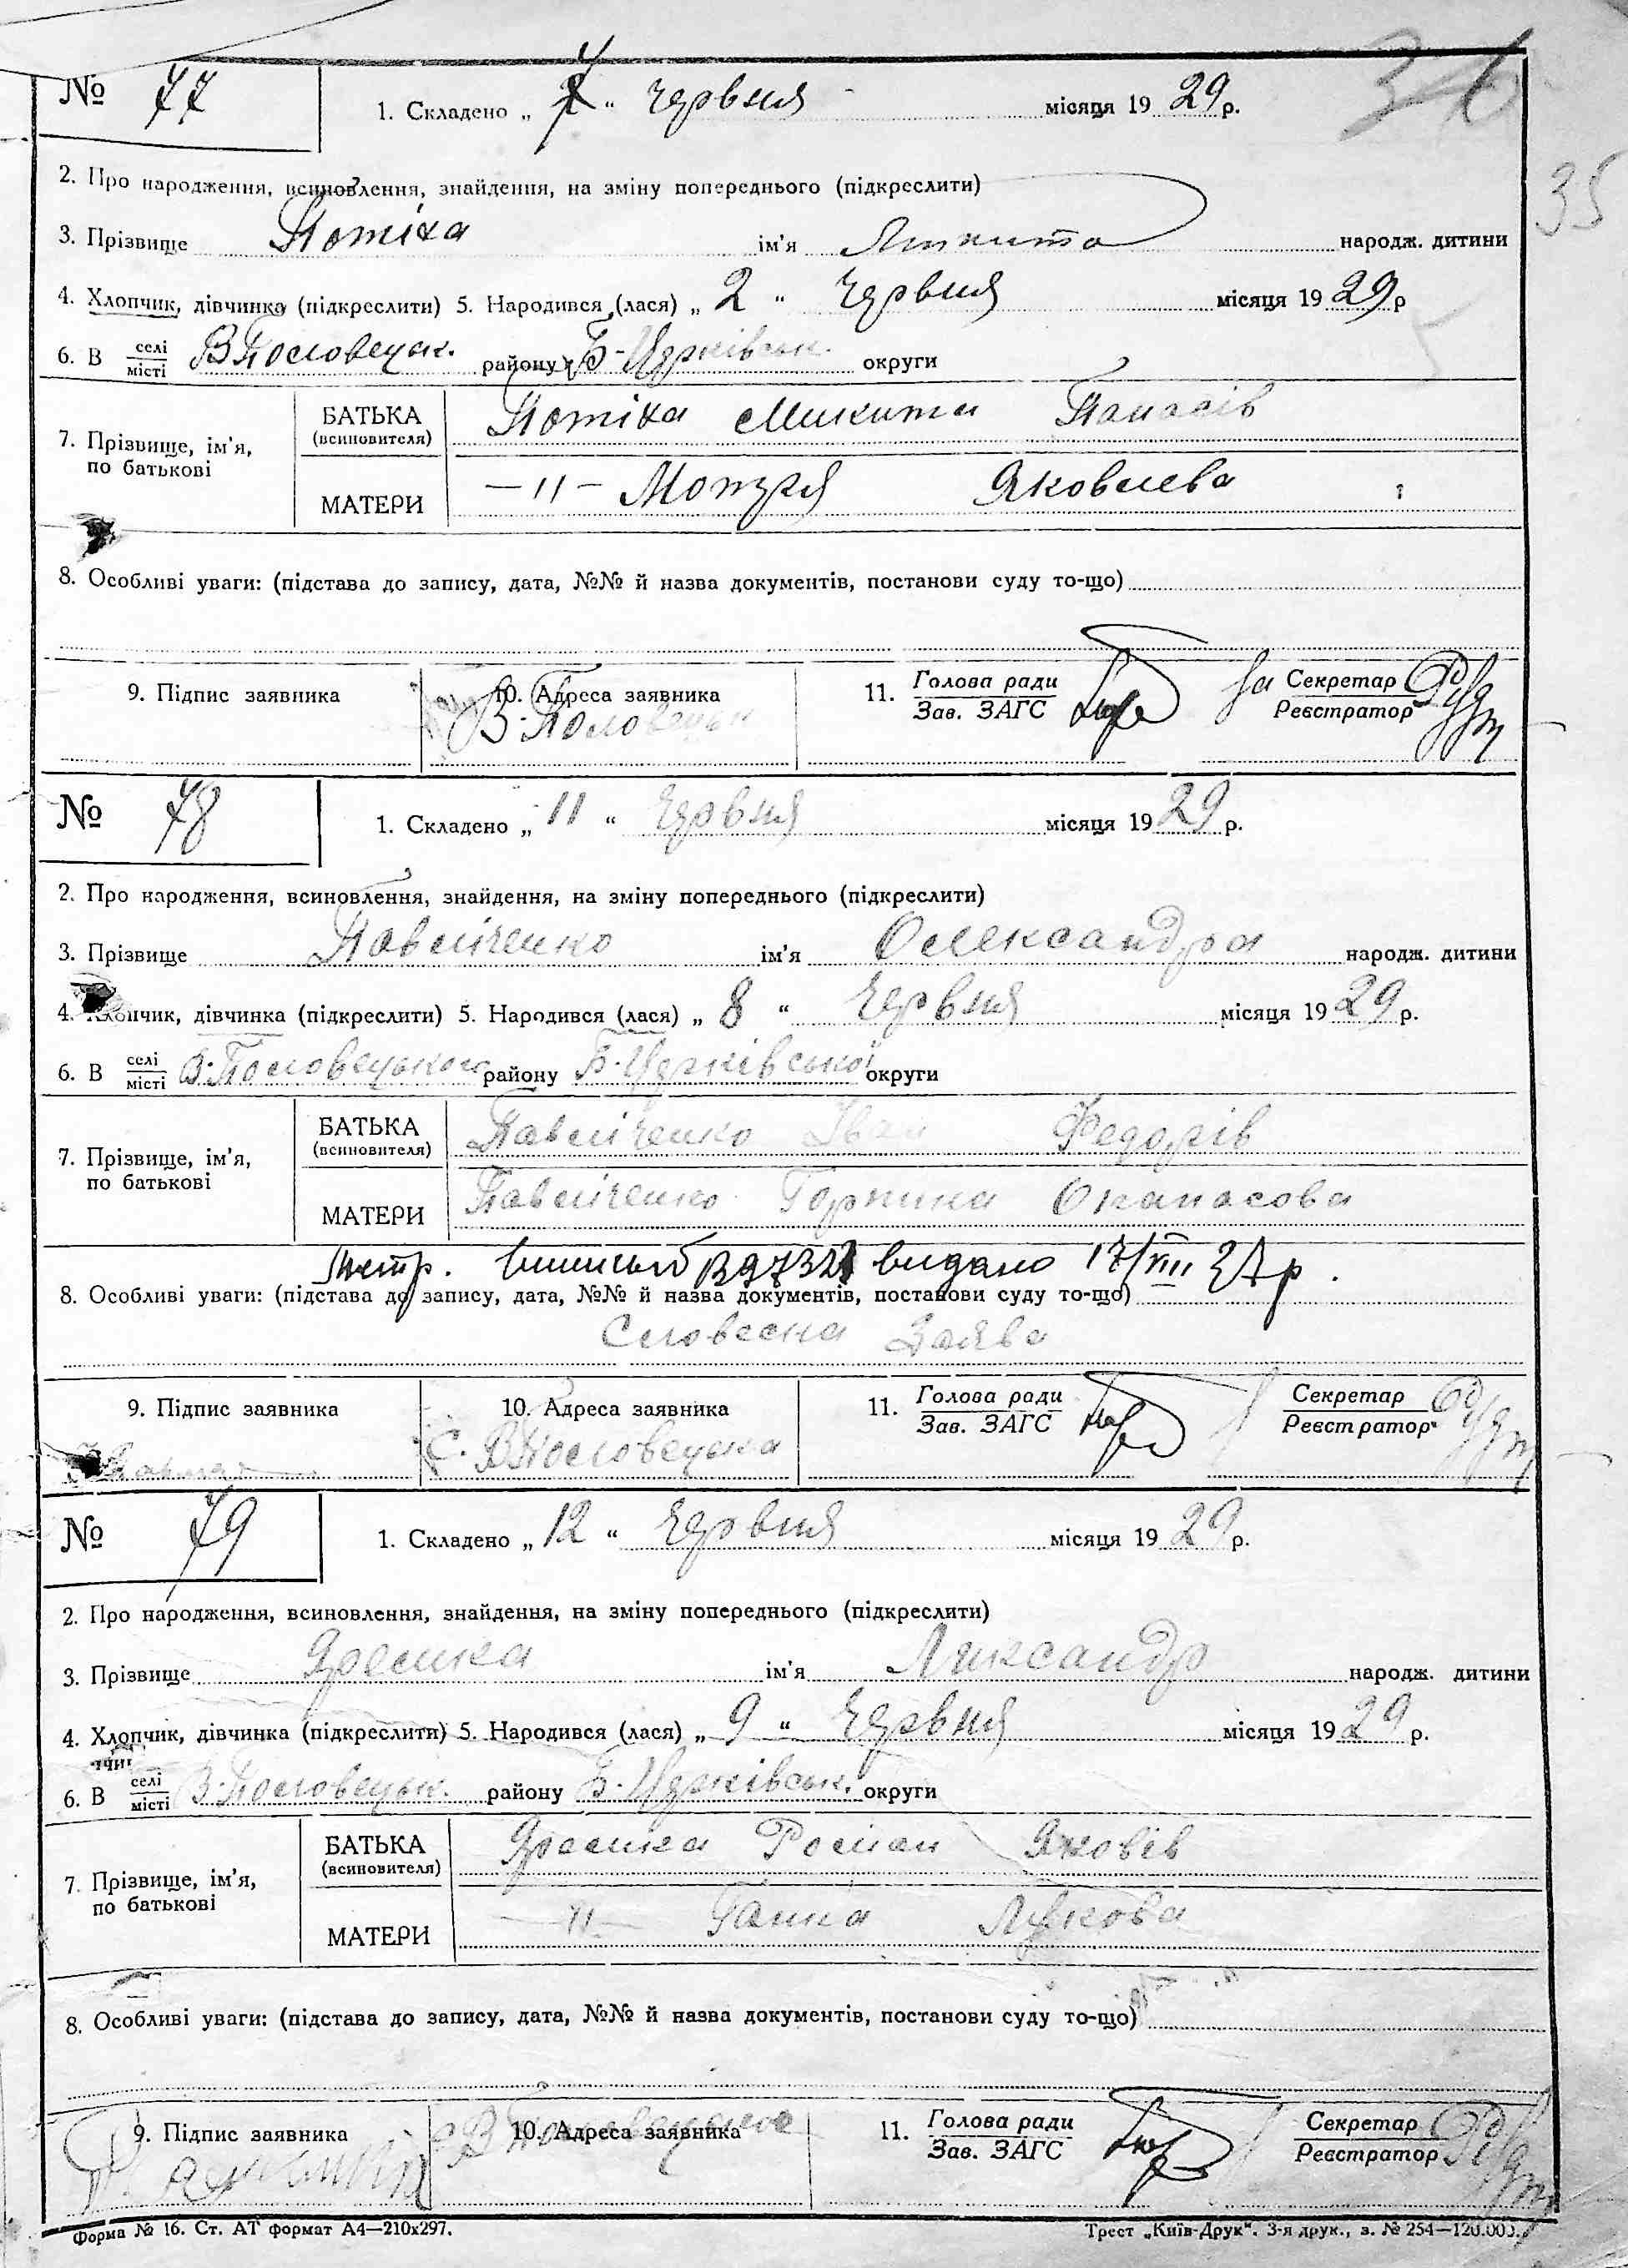 № 77
1. Складено „ 7 “ червня місяця 19 29 р.
35
2. Про народження, всиновлення, знайдення, на зміну попереднього (підкреслити)
3. Прізвище Потіха ім'я Микита народж. дитини
4. Хлопчик, дівчинка (підкреслити) 5. Народився (лася) „ 2 “ Червня місяця 19 29 р
6. В селі місті В Половецьк. району Б-Церківськ. округи
7. Прізвище, ім'я, по батькові
БАТЬКА (всиновителя) Потіха Микита Панасів
МАТЕРИ —〃— Мотря Яковлева
8. Особливі уваги: (підстава до запису, дата, №№ й назва документів, постанови суду то-що)
9. Підпис заявника
10. Адреса заявника В-Половецьк
11. Голова ради Зав. ЗАГС
за Секретар Реєстратор
№ 78
1. Складено „ 11 “ Червня місяця 19 29 р.
2. Про народження, всиновлення, знайдення, на зміну попереднього (підкреслити)
3. Прізвище Павліченко ім'я Олександра народж. дитини
4. Хлопчик, дівчинка (підкреслити) 5. Народився (лася) „ 8 “ Червня місяця 19 29 р.
6. В селі місті В-Половецького району Б-Церківської округи
7. Прізвище, ім'я, по батькові
БАТЬКА (всиновителя) Павліченко Іван Федорів
МАТЕРИ Павліченко Горпина Опанасова
видано 17/VIII р.
8. Особливі уваги: (підстава до запису, дата, №№ й назва документів, постанови суду то-що)
Словесна Заява
9. Підпис заявника
10. Адреса заявника С. В Половецька
11. Голова ради Зав. ЗАГС
Секретар Реєстратор
№ 79
1. Складено „ 12 “ Червня місяця 19 29 р.
2. Про народження, всиновлення, знайдення, на зміну попереднього (підкреслити)
3. Прізвище ім'я Ликсандр народж. дитини
4. Хлопчик, дівчинка (підкреслити) 5. Народився (лася) „ 9 “ Червня місяця 19 29 р.
6. В селі місті В-Половецьк. району Б-Церківськ. округи
7. Прізвище, ім'я, по батькові
БАТЬКА (всиновителя) Роман Яковів
МАТЕРИ —〃— Ганна Лукова
8. Особливі уваги: (підстава до запису, дата, №№ й назва документів, постанови суду то-що)
9. Підпис заявника
10. Адреса заявника
11. Голова ради Зав. ЗАГС
Секретар Реєстратор
Форма № 16. Ст. АТ формат А4—210х297.
Трест „Київ-Друк“. 3-я друк., з. № 254—120.000.